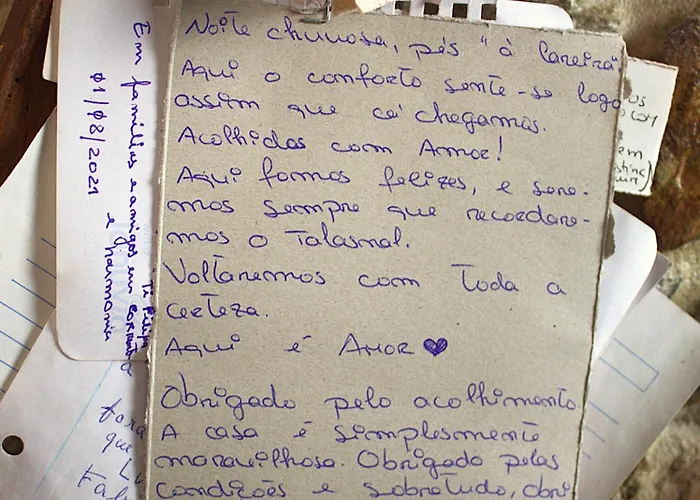 Noite chuvosa, pés "à lareira"
Aqui o conforto sente-se logo
assim que cá chegamos.
Acolhidos com Amor!
Aqui fomos felizes, e sere-
mos sempre que recordare-
mos o Talasnal.
Voltaremos com toda a
certeza.
Aqui é Amor ♥
Obrigado pelo acolhimento.
A casa é simplesmente
maravilhosa. Obrigado pelas
condições e sobretudo, obri
Em famílias e amigos em
e harmonia
01/08/2021
fora
que